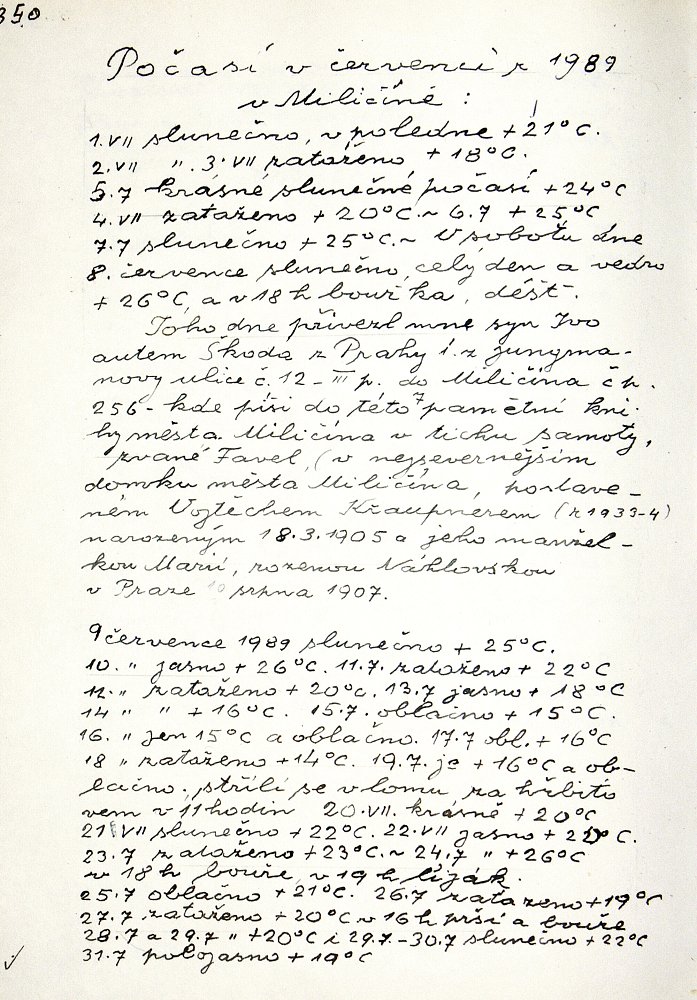 350
Počasí v červenci r 1989
v Miličíně :
1.VII slunečno, v poledne + 21°C.
2.VII " . 3.VII zataženo + 18°C.
5.7 krásné slunečné počasí + 24°C
4.VII zataženo + 20°C. ~ 6.7 + 25°C
7.7 slunečno + 25°C. ~ V sobotu dne
8. července slunečno, celý den a vedro
+ 26°C, a v 18 h bouřka, déšť.
Toho dne přivezl mne syn Ivo
autem Škoda z Prahy 1. z Jungma-
novy ulice č. 12 - III p. do Miličína čp.
256 - kde píši do této pamětní kni-
hy města Miličína v tichu samoty,
zvané Favel, (v nejsevernějším
domku města Miličína, postave-
ném Vojtěchem Kraupnerem (r 1933-4)
narozeným 18.3.1905 a jeho manžel-
kou Marií, rozenou Náhlovskou
v Praze srpna 1907.
9 července 1989 slunečno + 25°C.
10. " jasno + 26°C. 11.7. zataženo + 22°C
12. " zataženo + 20°C. 13.7 jasno + 18°C
14 " " + 16°C. 15.7. oblačno + 15°C.
16. " jen 15°C a oblačno. 17.7 obl. + 16°C
18 " zataženo + 14°C. 19.7. je + 16°C a ob-
lačno. střílí se v lomu za hřbito
vem v 11 hodin 20.VII. krásně + 20°C
21 VII slunečno + 22°C. 22.VII jasno + 2 °C.
23.7 zataženo + 23°C. ~ 24.7 " + 26°C
v 18 h bouře, v 19 h liják.
25.7 oblačno + 21°C. 26.7 zataženo + 19°C
27.7 zataženo + 20°C v 16 h prší a bouře
28.7 a 29.7 " + 20°C i 29.7. - 30.7 slunečno + 22°C
31.7 polojasno + 19°C